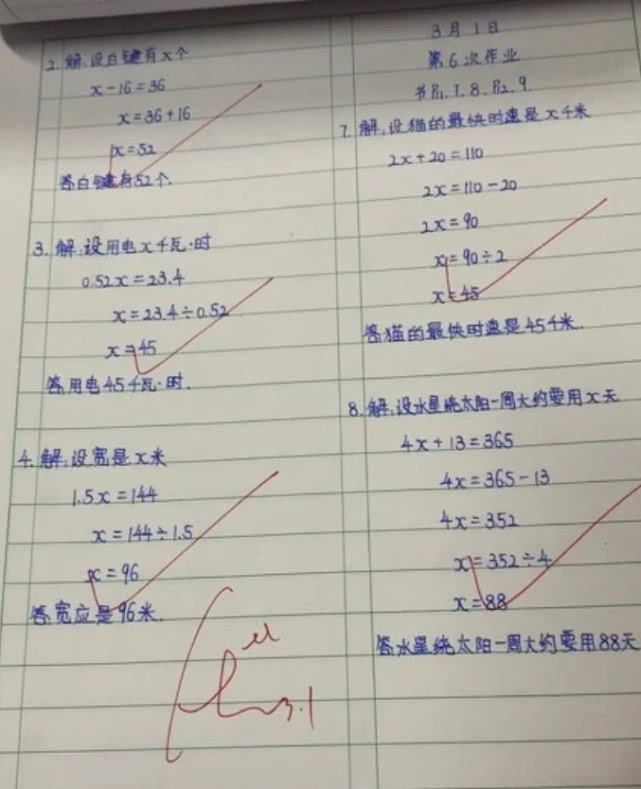 2. 解:设白键有x个
x-16=36
x=36+16
x=52
答白键有52个.
3. 解:设用电x千瓦·时
0.52x=23.4
x=23.4÷0.52
x=45
答用电45千瓦·时.
4. 解:设宽是x米
1.5x=144
x=144÷1.5
x=96
答宽应是96米.
3月1日
第6次作业
书P11.7.8.P12.9
7. 解:设猫的最快时速是x千米
2x+20=110
2x=110-20
2x=90
x=90÷2
x=45
答猫的最快时速是45千米.
8. 解:设水星绕太阳一周大约要用x天
4x+13=365
4x=365-13
4x=352
x=352÷4
x=88
答水星绕太阳一周大约要用88天
3.1